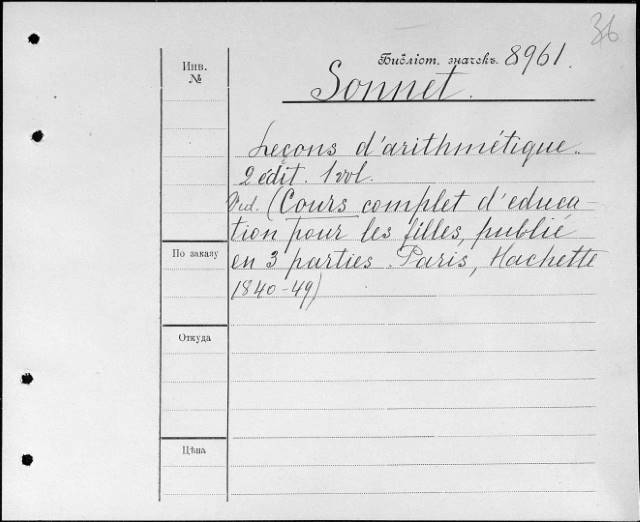 36
Инв.
№
Библіот. значекъ. 8961.
Sonnet.
Leçons d'arithmétique.
2 édit. 1 vol.
Vid. (Cours complet d'educa-
tion pour les filles, publié
en 3 parties. Paris, Hachette
1840-49)
По заказу
Откуда
Цѣна